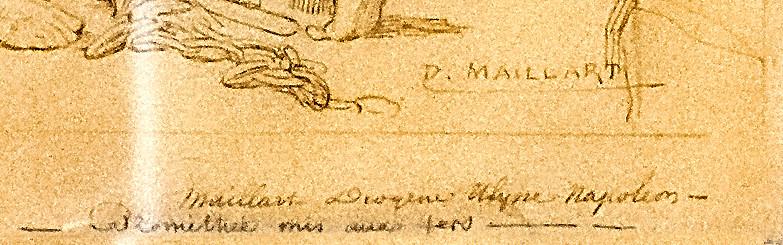 D. MAILLART
Maillart Diogène Ulysse Napoléon —
— Promithée mis aux fers — —